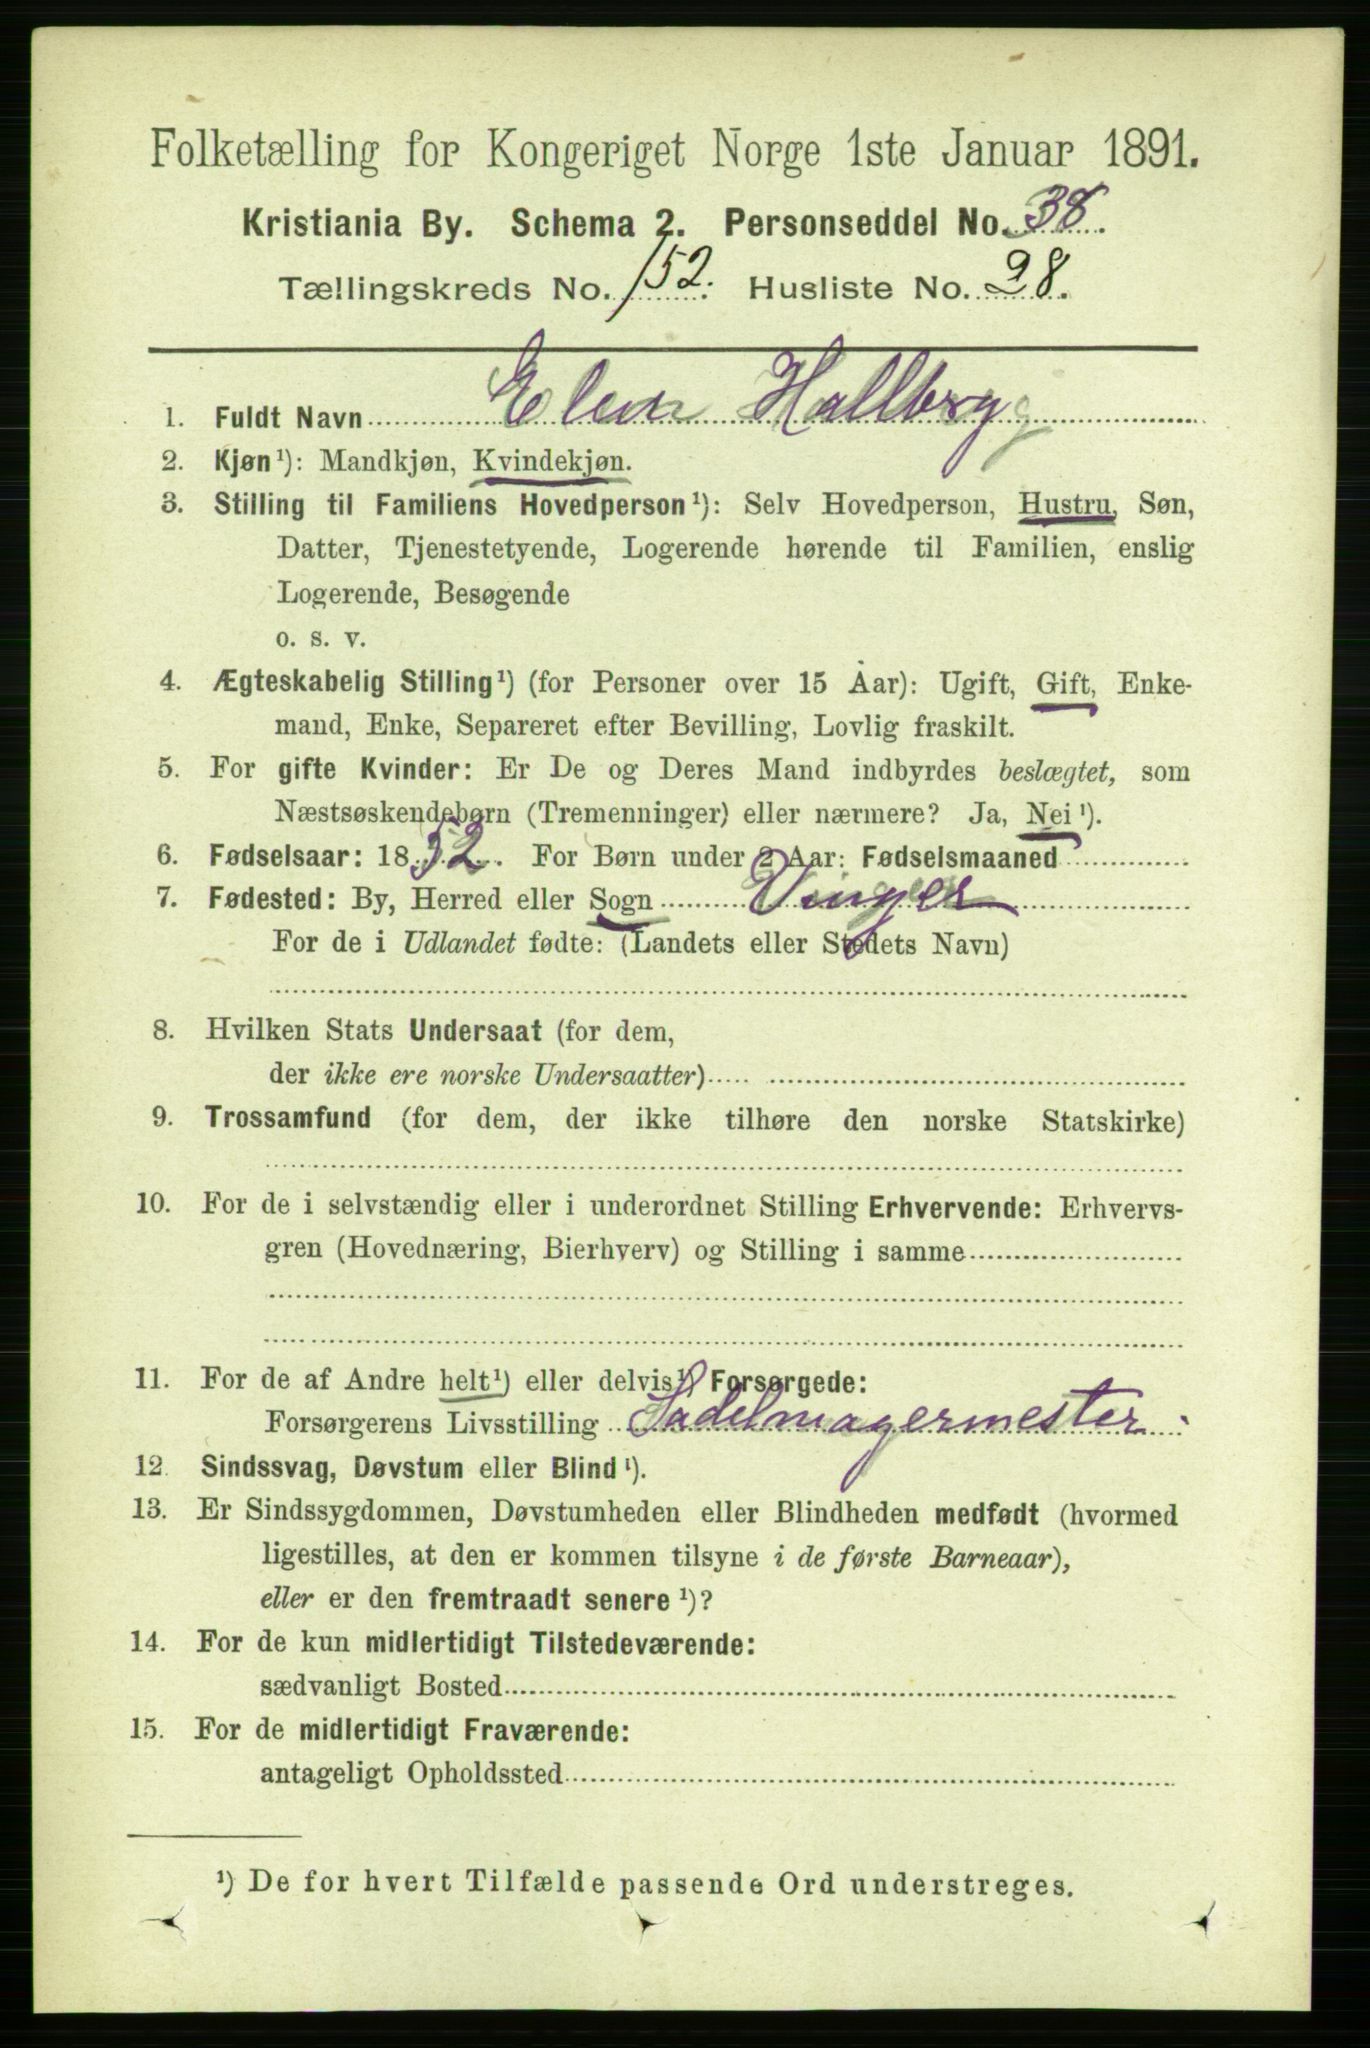 Folketælling for Kongeriget Norge 1ste Januar 1891.
Kristiania By. Schema 2. Personseddel No. 38.
Tællingskreds No. 152. Husliste No. 28.
1. Fuldt Navn Elen Hallberg
2. Kjøn¹): Mandkjøn, Kvindekjøn.
3. Stilling til Familiens Hovedperson¹): Selv Hovedperson, Hustru, Søn,
Datter, Tjenestetyende, Logerende hørende til Familien, enslig
Logerende, Besøgende
o. s. v.
4. Ægteskabelig Stilling¹) (for Personer over 15 Aar): Ugift, Gift, Enke-
mand, Enke, Separeret efter Bevilling, Lovlig fraskilt.
5. For gifte Kvinder: Er De og Deres Mand indbyrdes beslægtet, som
Næstsøskendebørn (Tremenninger) eller nærmere? Ja, Nei¹).
6. Fødselsaar: 1852. For Børn under 2 Aar: Fødselsmaaned
7. Fødested: By, Herred eller Sogn Vinger
For de i Udlandet fødte: (Landets eller Stedets Navn)
8. Hvilken Stats Undersaat (for dem,
der ikke ere norske Undersaatter)
9. Trossamfund (for dem, der ikke tilhøre den norske Statskirke)
10. For de i selvstændig eller i underordnet Stilling Erhvervende: Erhvervs-
gren (Hovednæring, Bierhverv) og Stilling i samme
11. For de af Andre helt¹) eller delvis¹) Forsørgede:
Forsørgerens Livsstilling Sadelmagermester.
12. Sindssvag, Døvstum eller Blind¹).
13. Er Sindssygdommen, Døvstumheden eller Blindheden medfødt (hvormed
ligestilles, at den er kommen tilsyne i de første Barneaar),
eller er den fremtraadt senere¹)?
14. For de kun midlertidigt Tilstedeværende:
sædvanligt Bosted
15. For de midlertidigt Fraværende:
antageligt Opholdssted
¹) De for hvert Tilfælde passende Ord understreges.